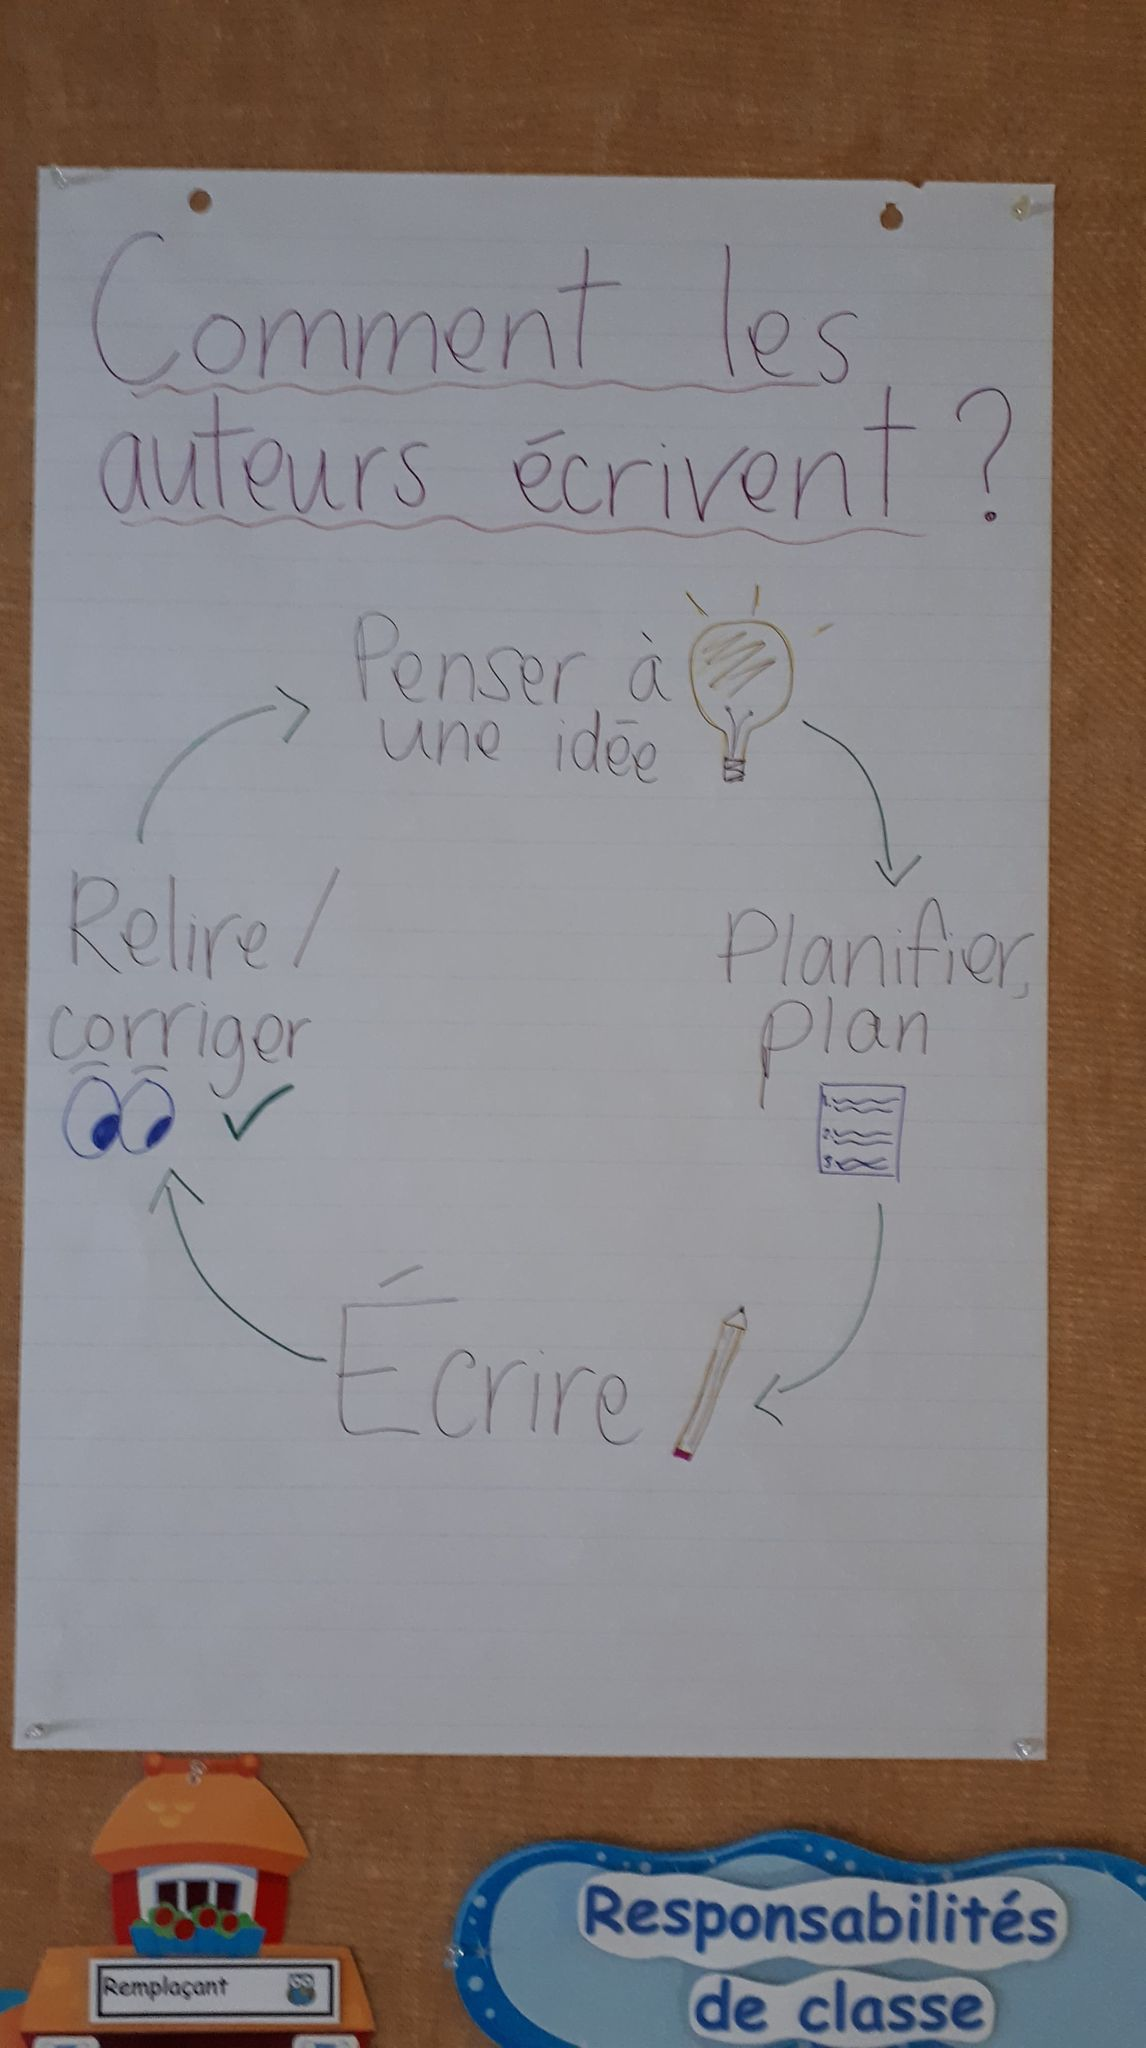 Comment les
auteurs écrivent ?
Penser à
une idée
Planifier,
plan
1.
2.
3.
Écrire
Relire/
corriger
Remplaçant
Responsabilités
de classe